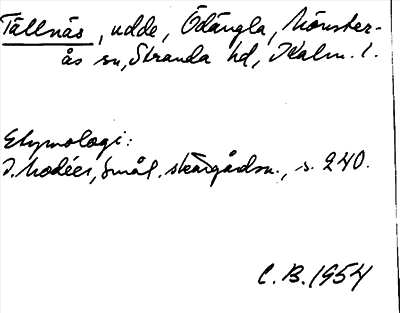 Tällnäs, udde, Ödängla, Mönster-
ås sn, Stranda hd, Kalm. l.
Etymologi:
I. Modéer, Smål. skärgårdsn., s. 240.
C. B. 1954